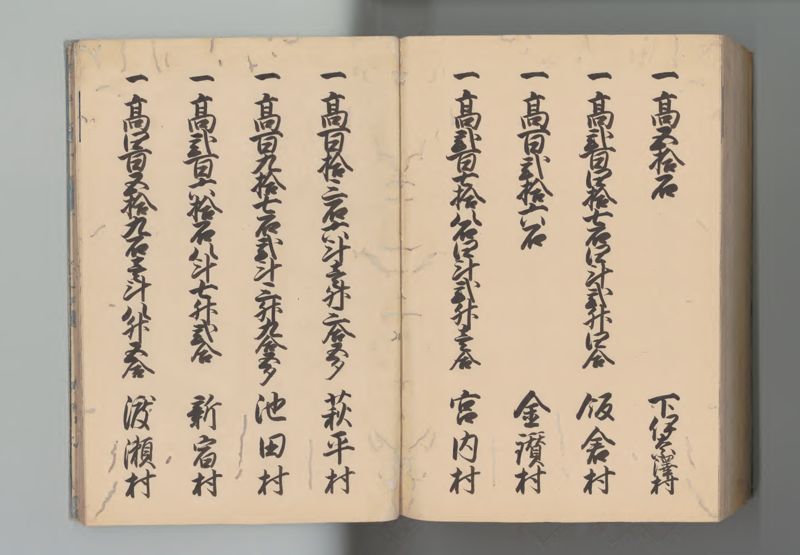 一 髙五拾石 下澤村
一 髙弐百四拾七石四斗弐升四合 飯倉村
一 髙百弐拾六石 金鑚村
一 髙弐百七拾八石四斗弐升壱合 宮内村
一 髙百拾三石六斗壱升三合五夕 萩平村
一 髙百九拾七石弐斗三升九合五夕 池田村
一 髙弐百六拾石八斗七升弐合 新宿村
一 髙四百五拾九石壱斗八升五合 渡瀬村